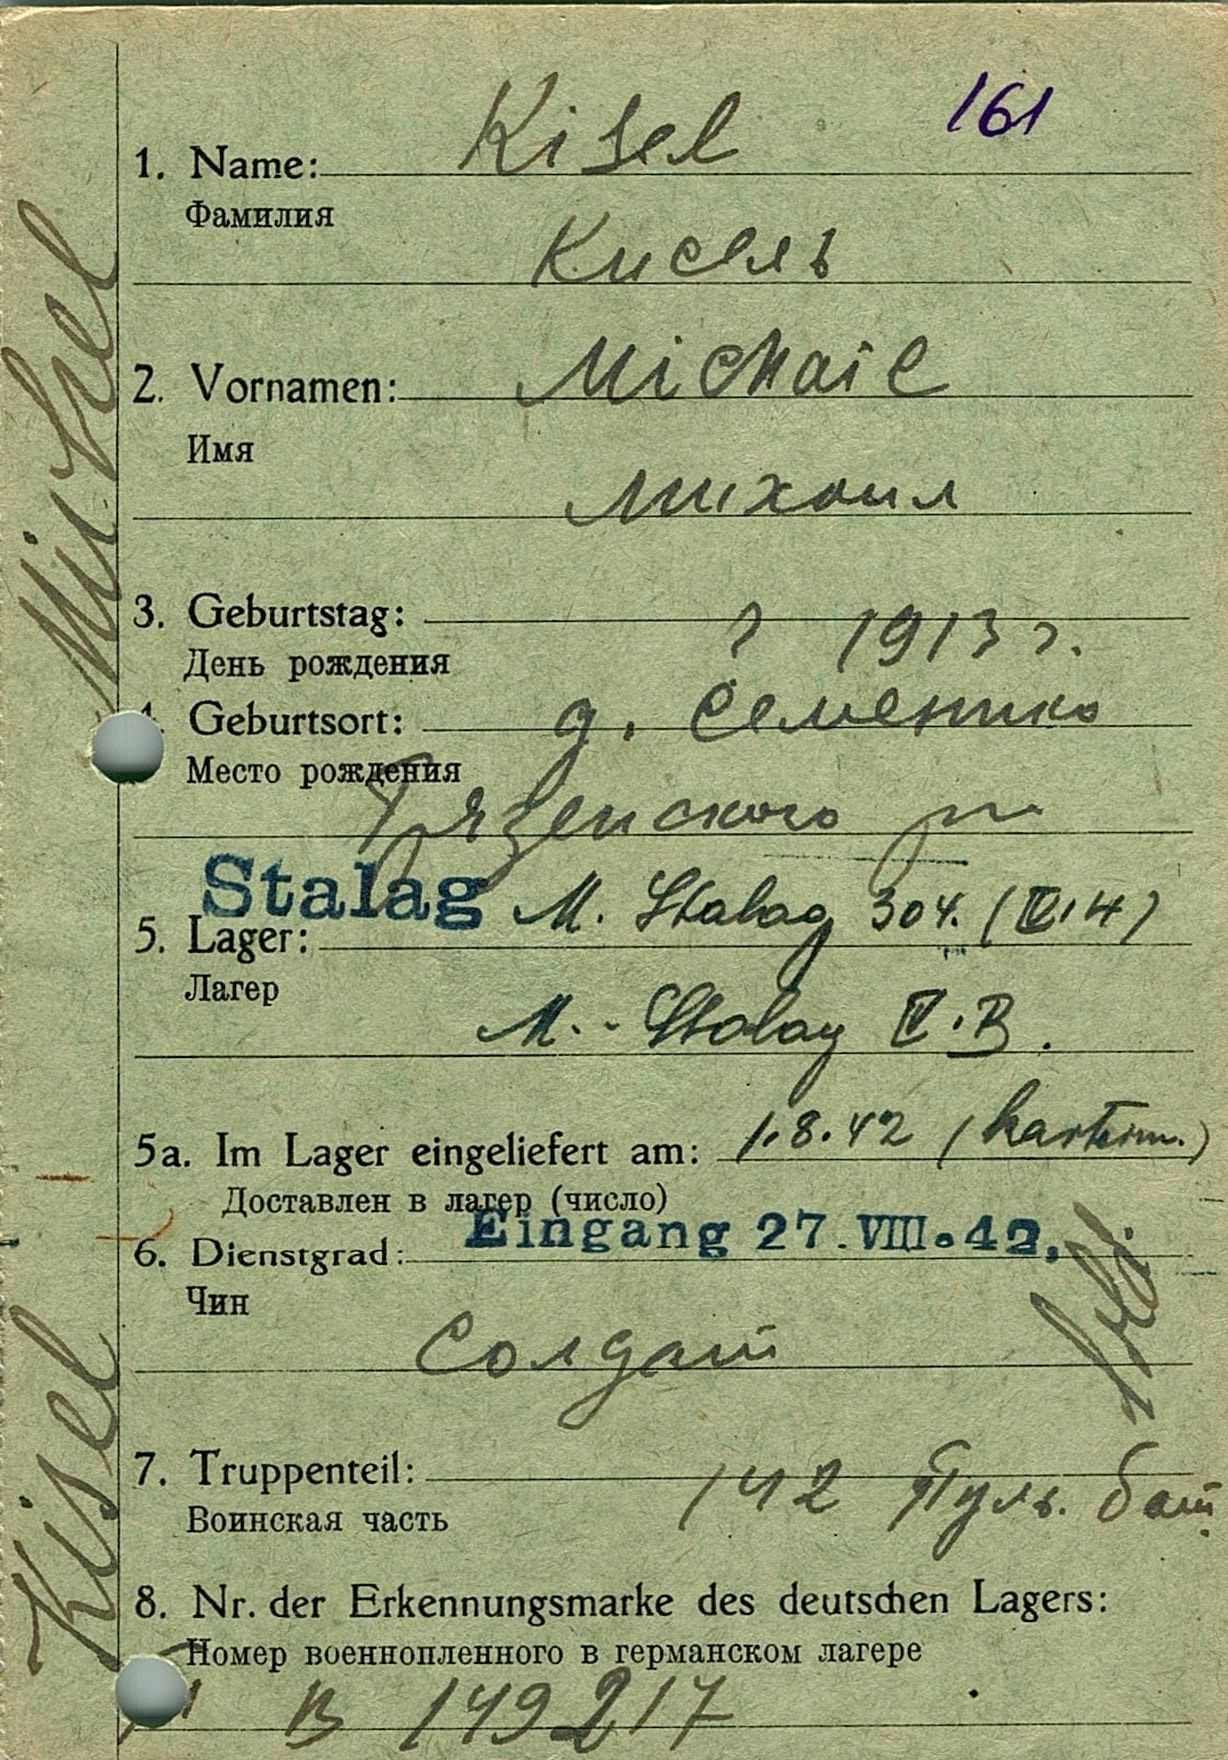 161
1. Name: Kisel
Фамилия
Кисель
2. Vornamen: Michail
Имя
Михаил
3. Geburtstag: ? 1913 г.
День рождения
Geburtsort: д. Семенико
Место рождения
5. Lager: Stalag M. Stalag 304. (IV H)
Лагер
M. Stalag IV. B.
5a. Im Lager eingeliefert am: 1.8.42
Доставлен в лагер (число)
Eingang 27. VIII. 42.
6. Dienstgrad:
Чин
Солдат
7. Truppenteil: 142 Пуль. бат
Воинская часть
8. Nr. der Erkennungsmarke des deutschen Lagers:
Номер военнопленного в германском лагере
B 149217
Kisel Michel